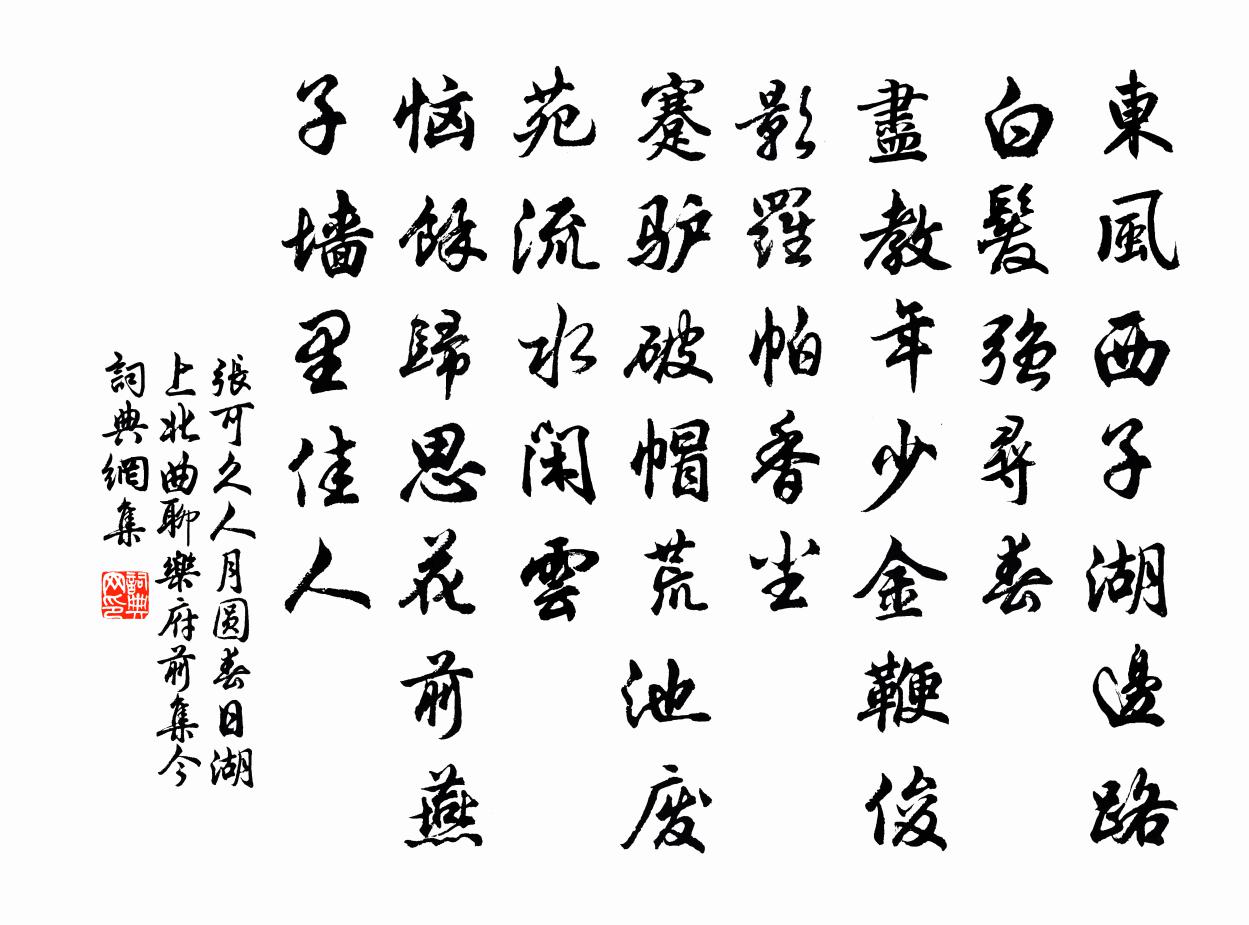 東風西子湖邊路
白髮強尋春
盡教年少金鞭俊
影羅帕香尘
蹇驴破帽荒池废
苑流水闲雲
恼餘歸思花前燕
子墙里佳人
張可久人月圆春日湖
上北曲聊樂府前集今
詞典網集
詞典网印